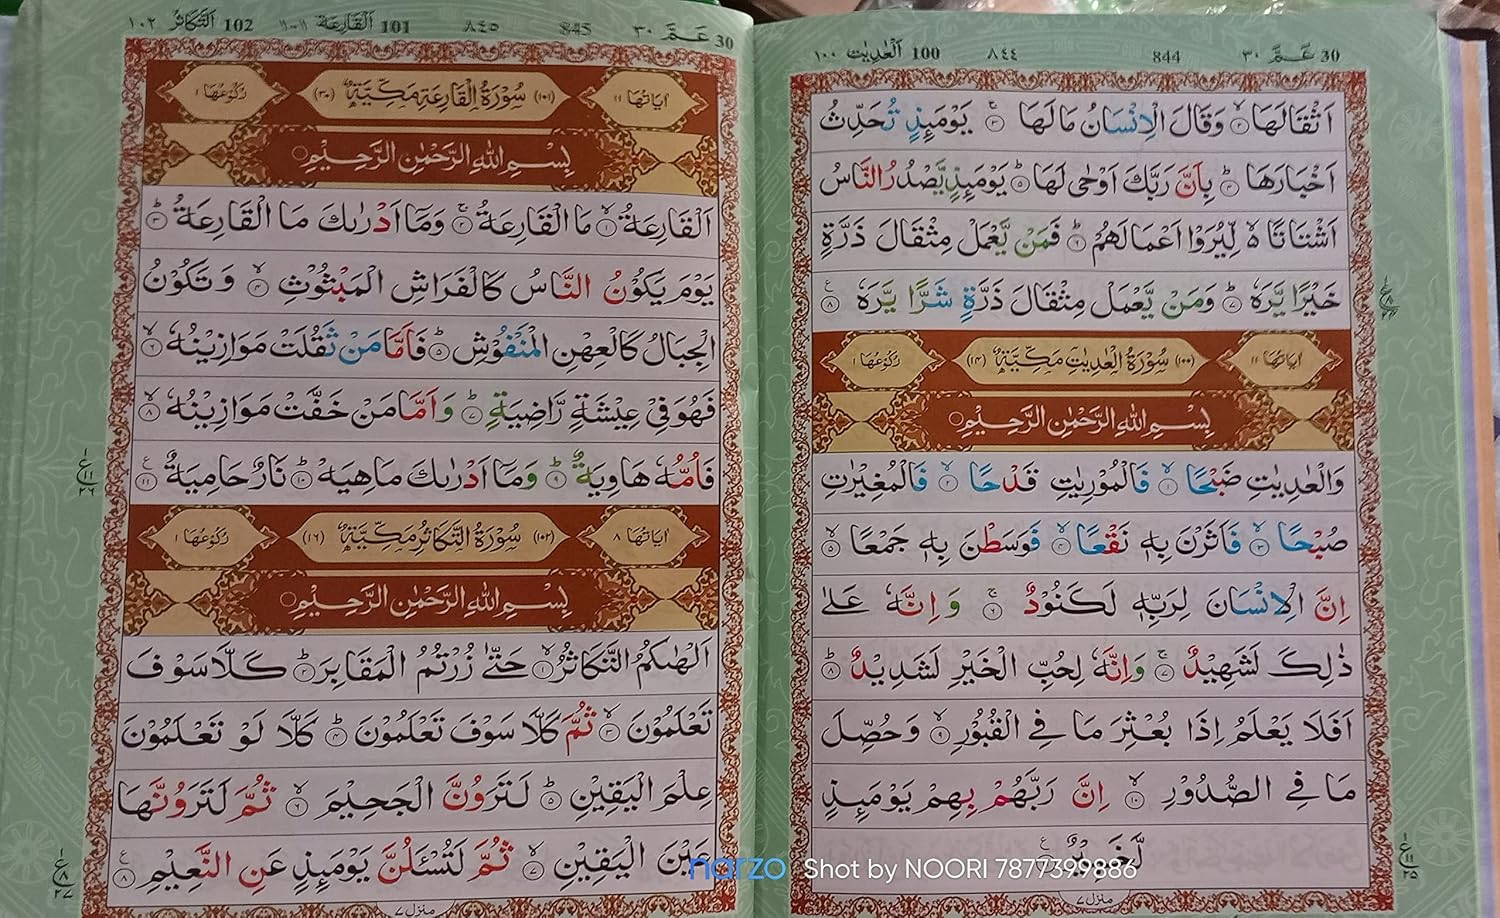 ٣٠ عَمَّ 30
844 ٨٤٤
١٠٠ اَلْعٰدِيٰت 100
اَثْقَالَهَا ۙ﴿۲﴾ وَقَالَ الْاِنْسَانُ مَا لَهَا ۚ﴿۳﴾ يَوْمَئِذٍ تُحَدِّثُ
اَخْبَارَهَا ؕ﴿۴﴾ بِاَنَّ رَبَّكَ اَوْحٰى لَهَا ؕ﴿۵﴾ يَوْمَئِذٍ يَّصْدُرُ النَّاسُ
اَشْتَاتًا ۙ۬ لِّيُرَوْا اَعْمَالَهُمْ ؕ﴿۶﴾ فَمَنْ يَّعْمَلْ مِثْقَالَ ذَرَّةٍ
خَيْرًا يَّرَهٗ ؕ﴿۷﴾ وَمَنْ يَّعْمَلْ مِثْقَالَ ذَرَّةٍ شَرًّا يَّرَهٗ ﴿۸﴾
اٰيَاتُهَا ١١ (١٠٠) سُوْرَةُ الْعٰدِيٰتِ مَكِّيَّةٌ (١٤) رُكُوْعُهَا ١
بِسْمِ اللّٰهِ الرَّحْمٰنِ الرَّحِيْمِ
وَالْعٰدِيٰتِ ضَبْحًا ۙ﴿۱﴾ فَالْمُوْرِيٰتِ قَدْحًا ۙ﴿۲﴾ فَالْمُغِيْرٰتِ
صُبْحًا ۙ﴿۳﴾ فَاَثَرْنَ بِهٖ نَقْعًا ۙ﴿۴﴾ فَوَسَطْنَ بِهٖ جَمْعًا ۙ﴿۵﴾
اِنَّ الْاِنْسَانَ لِرَبِّهٖ لَكَنُوْدٌ ۚ﴿۶﴾ وَاِنَّهٗ عَلٰى
ذٰلِكَ لَشَهِيْدٌ ۚ﴿۷﴾ وَاِنَّهٗ لِحُبِّ الْخَيْرِ لَشَدِيْدٌ ؕ﴿۸﴾
اَفَلَا يَعْلَمُ اِذَا بُعْثِرَ مَا فِي الْقُبُوْرِ ۙ﴿۹﴾ وَحُصِّلَ
مَا فِي الصُّدُوْرِ ۙ﴿۱۰﴾ اِنَّ رَبَّهُمْ بِهِمْ يَوْمَئِذٍ
لَّخَبِيْرٌ
منزل ٧
٣٠ عَمَّ 30
845 ٨٤٥
١٠١ اَلْقَارِعَة 101
١٠٢ اَلتَّكَاثُر 102
اٰيَاتُهَا ١١ (١٠١) سُوْرَةُ الْقَارِعَةِ مَكِّيَّةٌ (٣٠) رُكُوْعُهَا ١
بِسْمِ اللّٰهِ الرَّحْمٰنِ الرَّحِيْمِ
اَلْقَارِعَةُ ۙ﴿۱﴾ مَا الْقَارِعَةُ ۚ﴿۲﴾ وَمَاۤ اَدْرٰىكَ مَا الْقَارِعَةُ ؕ﴿۳﴾
يَوْمَ يَكُوْنُ النَّاسُ كَالْفَرَاشِ الْمَبْثُوْثِ ۙ﴿۴﴾ وَتَكُوْنُ
الْجِبَالُ كَالْعِهْنِ الْمَنْفُوْشِ ؕ﴿۵﴾ فَاَمَّا مَنْ ثَقُلَتْ مَوَازِيْنُهٗ ۙ﴿۶﴾
فَهُوَ فِيْ عِيْشَةٍ رَّاضِيَةٍ ؕ﴿۷﴾ وَاَمَّا مَنْ خَفَّتْ مَوَازِيْنُهٗ ۙ﴿۸﴾
فَاُمُّهٗ هَاوِيَةٌ ؕ﴿۹﴾ وَمَاۤ اَدْرٰىكَ مَا هِيَهْ ؕ﴿۱۰﴾ نَارٌ حَامِيَةٌ ﴿۱۱﴾
اٰيَاتُهَا ٨ (١٠٢) سُوْرَةُ التَّكَاثُرِ مَكِّيَّةٌ (١٦) رُكُوْعُهَا ١
بِسْمِ اللّٰهِ الرَّحْمٰنِ الرَّحِيْمِ
اَلْهٰىكُمُ التَّكَاثُرُ ۙ﴿۱﴾ حَتّٰى زُرْتُمُ الْمَقَابِرَ ؕ﴿۲﴾ كَلَّا سَوْفَ
تَعْلَمُوْنَ ۙ﴿۳﴾ ثُمَّ كَلَّا سَوْفَ تَعْلَمُوْنَ ؕ﴿۴﴾ كَلَّا لَوْ تَعْلَمُوْنَ
عِلْمَ الْيَقِيْنِ ؕ﴿۵﴾ لَتَرَوُنَّ الْجَحِيْمَ ۙ﴿۶﴾ ثُمَّ لَتَرَوُنَّهَا
عَيْنَ الْيَقِيْنِ ۙ﴿۷﴾ ثُمَّ لَتُسْـَٔلُنَّ يَوْمَئِذٍ عَنِ النَّعِيْمِ ﴿۸﴾
منزل ٧
narzo Shot by NOORI 7877399886